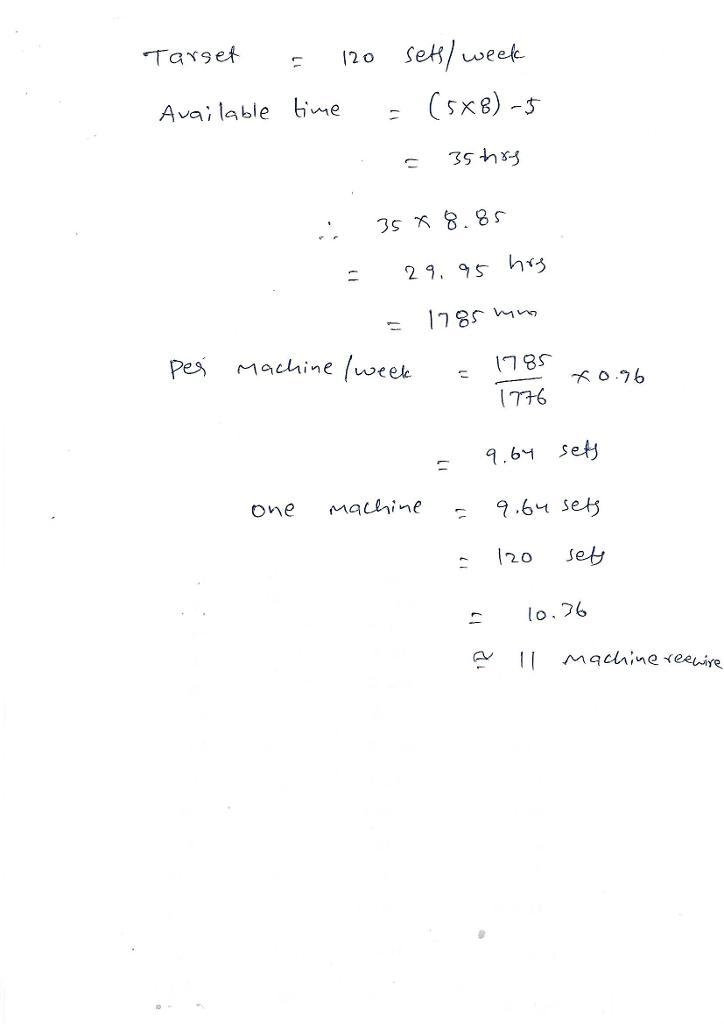 Target = 120 sets/week
Available time = (5x8) -5
= 35 hrs
∴ 35 x 8.85
= 29.95 hrs
= 1785 min
Per Machine/week = 1785/1776 x 0.96
= 9.64 sets
one machine = 9.64 sets
= 120 sets
= 10.36
≅ 11 machine